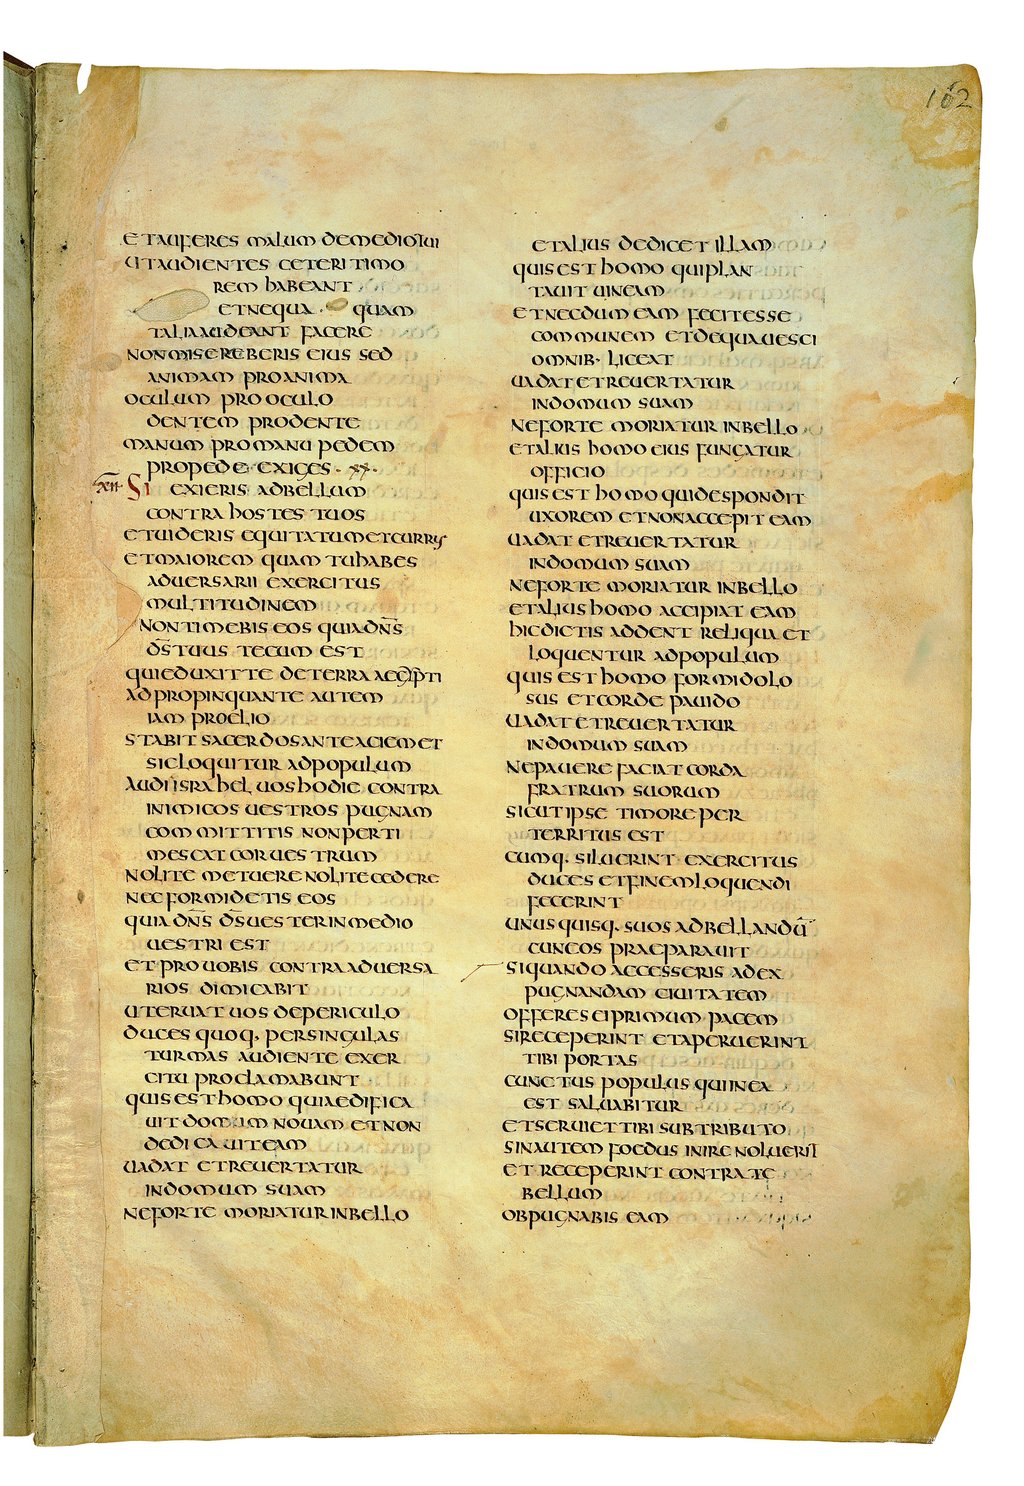 162
ET AUFERES MALUM DE MEDIO TUI
UT AUDIENTES CETERI TIMO
REM HABEANT
ET NEQUA · QUAM
TALIA AUDEANT FACERE
NON MISEREBERIS EIUS SED
ANIMAM PRO ANIMA
OCULUM PRO OCULO
DENTEM PRO DENTE
MANUM PRO MANU PEDEM
PRO PEDE EXIGES · XX ·
LXII SI EXIERIS AD BELLUM
CONTRA HOSTES TUOS
ET UIDERIS EQUITATUM ET CURRUS
ET MAIOREM QUAM TU HABES
ADUERSARII EXERCITUS
MULTITUDINEM
NON TIMEBIS EOS QUIA DN̅S
DS̅ TUUS TECUM EST
QUI EDUXIT TE DE TERRA AEGIPTI
ADPROPINQUANTE AUTEM
IAM PROELIO
STABIT SACERDOS ANTE ACIEM ET
SIC LOQUITUR AD POPULUM
AUDI ISRAHEL UOS HODIE CONTRA
INIMICOS UESTROS PUGNAM
COMMITTITIS NON PERTI
MESCAT COR UESTRUM
NOLITE METUERE NOLITE CEDERE
NEC FORMIDETIS EOS
QUIA DN̅S DS̅ UESTER IN MEDIO
UESTRI EST
ET PRO UOBIS CONTRA ADUERSA
RIOS DIMICABIT
UT ERUAT UOS DE PERICULO
DUCES QUOQ· PER SINGULAS
TURMAS AUDIENTE EXER
CITU PROCLAMABUNT
QUIS EST HOMO QUI AEDIFICA
UIT DOMUM NOUAM ET NON
DEDICAUIT EAM
UADAT ET REUERTATUR
IN DOMUM SUAM
NE FORTE MORIATUR IN BELLO
ET ALIUS DEDICET ILLAM
QUIS EST HOMO QUI PLAN
TAUIT UINEAM
ET NECDUM EAM FECIT ESSE
COMMUNEM ET DE QUA UESCI
OMNIB· LICEAT
UADAT ET REUERTATUR
IN DOMUM SUAM
NE FORTE MORIATUR IN BELLO
ET ALIUS HOMO EIUS FUNGATUR
OFFICIO
QUIS EST HOMO QUI DESPONDIT
UXOREM ET NON ACCEPIT EAM
UADAT ET REUERTATUR
IN DOMUM SUAM
NE FORTE MORIATUR IN BELLO
ET ALIUS HOMO ACCIPIAT EAM
HIC DICTIS ADDENT RELIQUA ET
LOQUENTUR AD POPULUM
QUIS EST HOMO FORMIDOLO
SUS ET CORDE PAUIDO
UADAT ET REUERTATUR
IN DOMUM SUAM
NE PAUERE FACIAT CORDA
FRATRUM SUORUM
SICUT IPSE TIMORE PER
TERRITUS EST
CUMQ· SILUERINT EXERCITUS
DUCES ET FINEM LOQUENDI
FECERINT
UNUSQUISQ· SUOS AD BELLANDU̅
CUNEOS PRAEPARAUIT
SI QUANDO ACCESSERIS AD EX
PUGNANDAM CIUITATEM
OFFERES EI PRIMUM PACEM
SI RECEPERINT ET APERUERINT
TIBI PORTAS
CUNCTUS POPULUS QUI IN EA
EST SALUABITUR
ET SERUIET TIBI SUB TRIBUTO
SIN AUTEM FOEDUS INIRE NOLUERIT
ET RECEPERINT CONTRA TE
BELLUM
OBPUGNABIS EAM